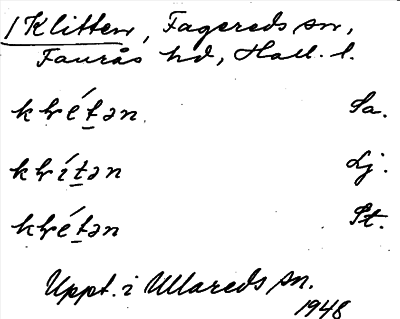 /Klitten, Fagereds sn,
Faurås hd, Hall. l.
klrét̠ən. Sa.
klrít̠ən Lj.
klrét̠ən St.
Uppt. i Ullareds sn.
1948